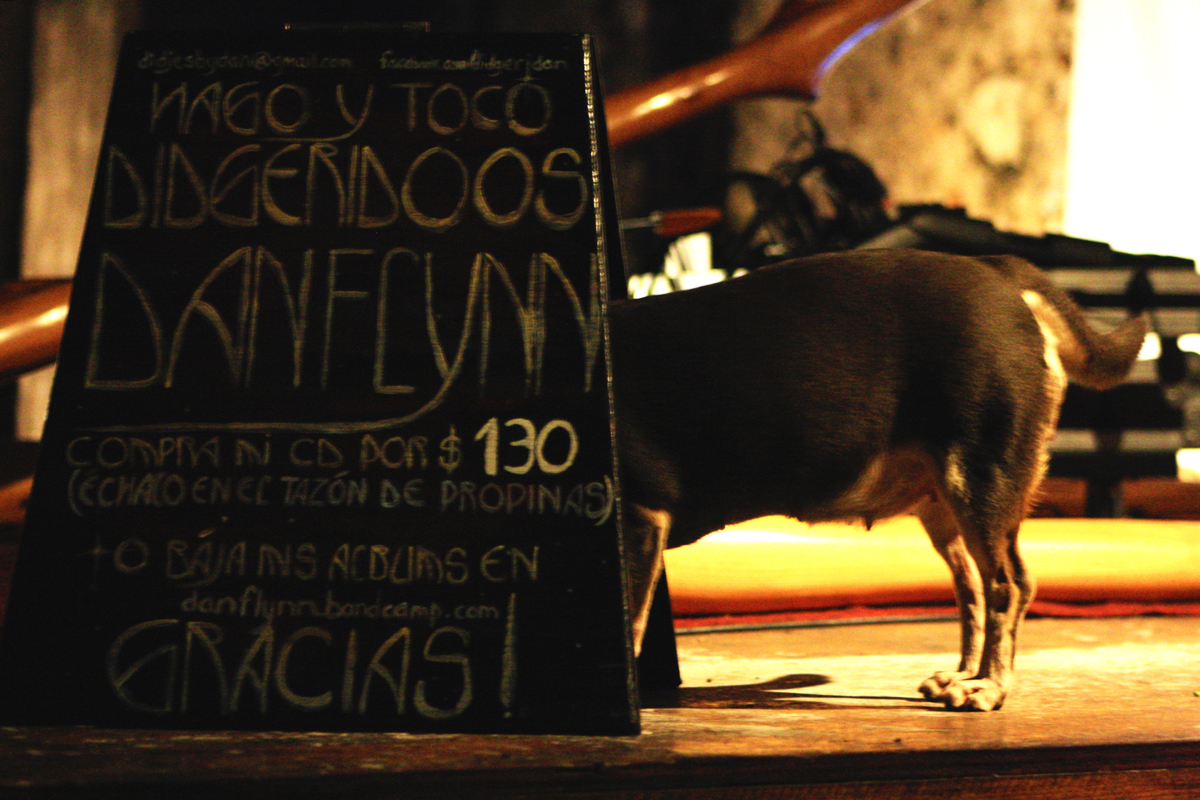 didjesbydan@gmail.com facebook.com/didgeridan
HAGO Y TOCO
DIDGERIDOOS
DANFLYNN
COMPRA MI CD POR $ 130
(ÉCHALO EN EL TAZÓN DE PROPINAS)
+O BAJA MIS ALBUMS EN
danflynn.bandcamp.com
GRACIAS!